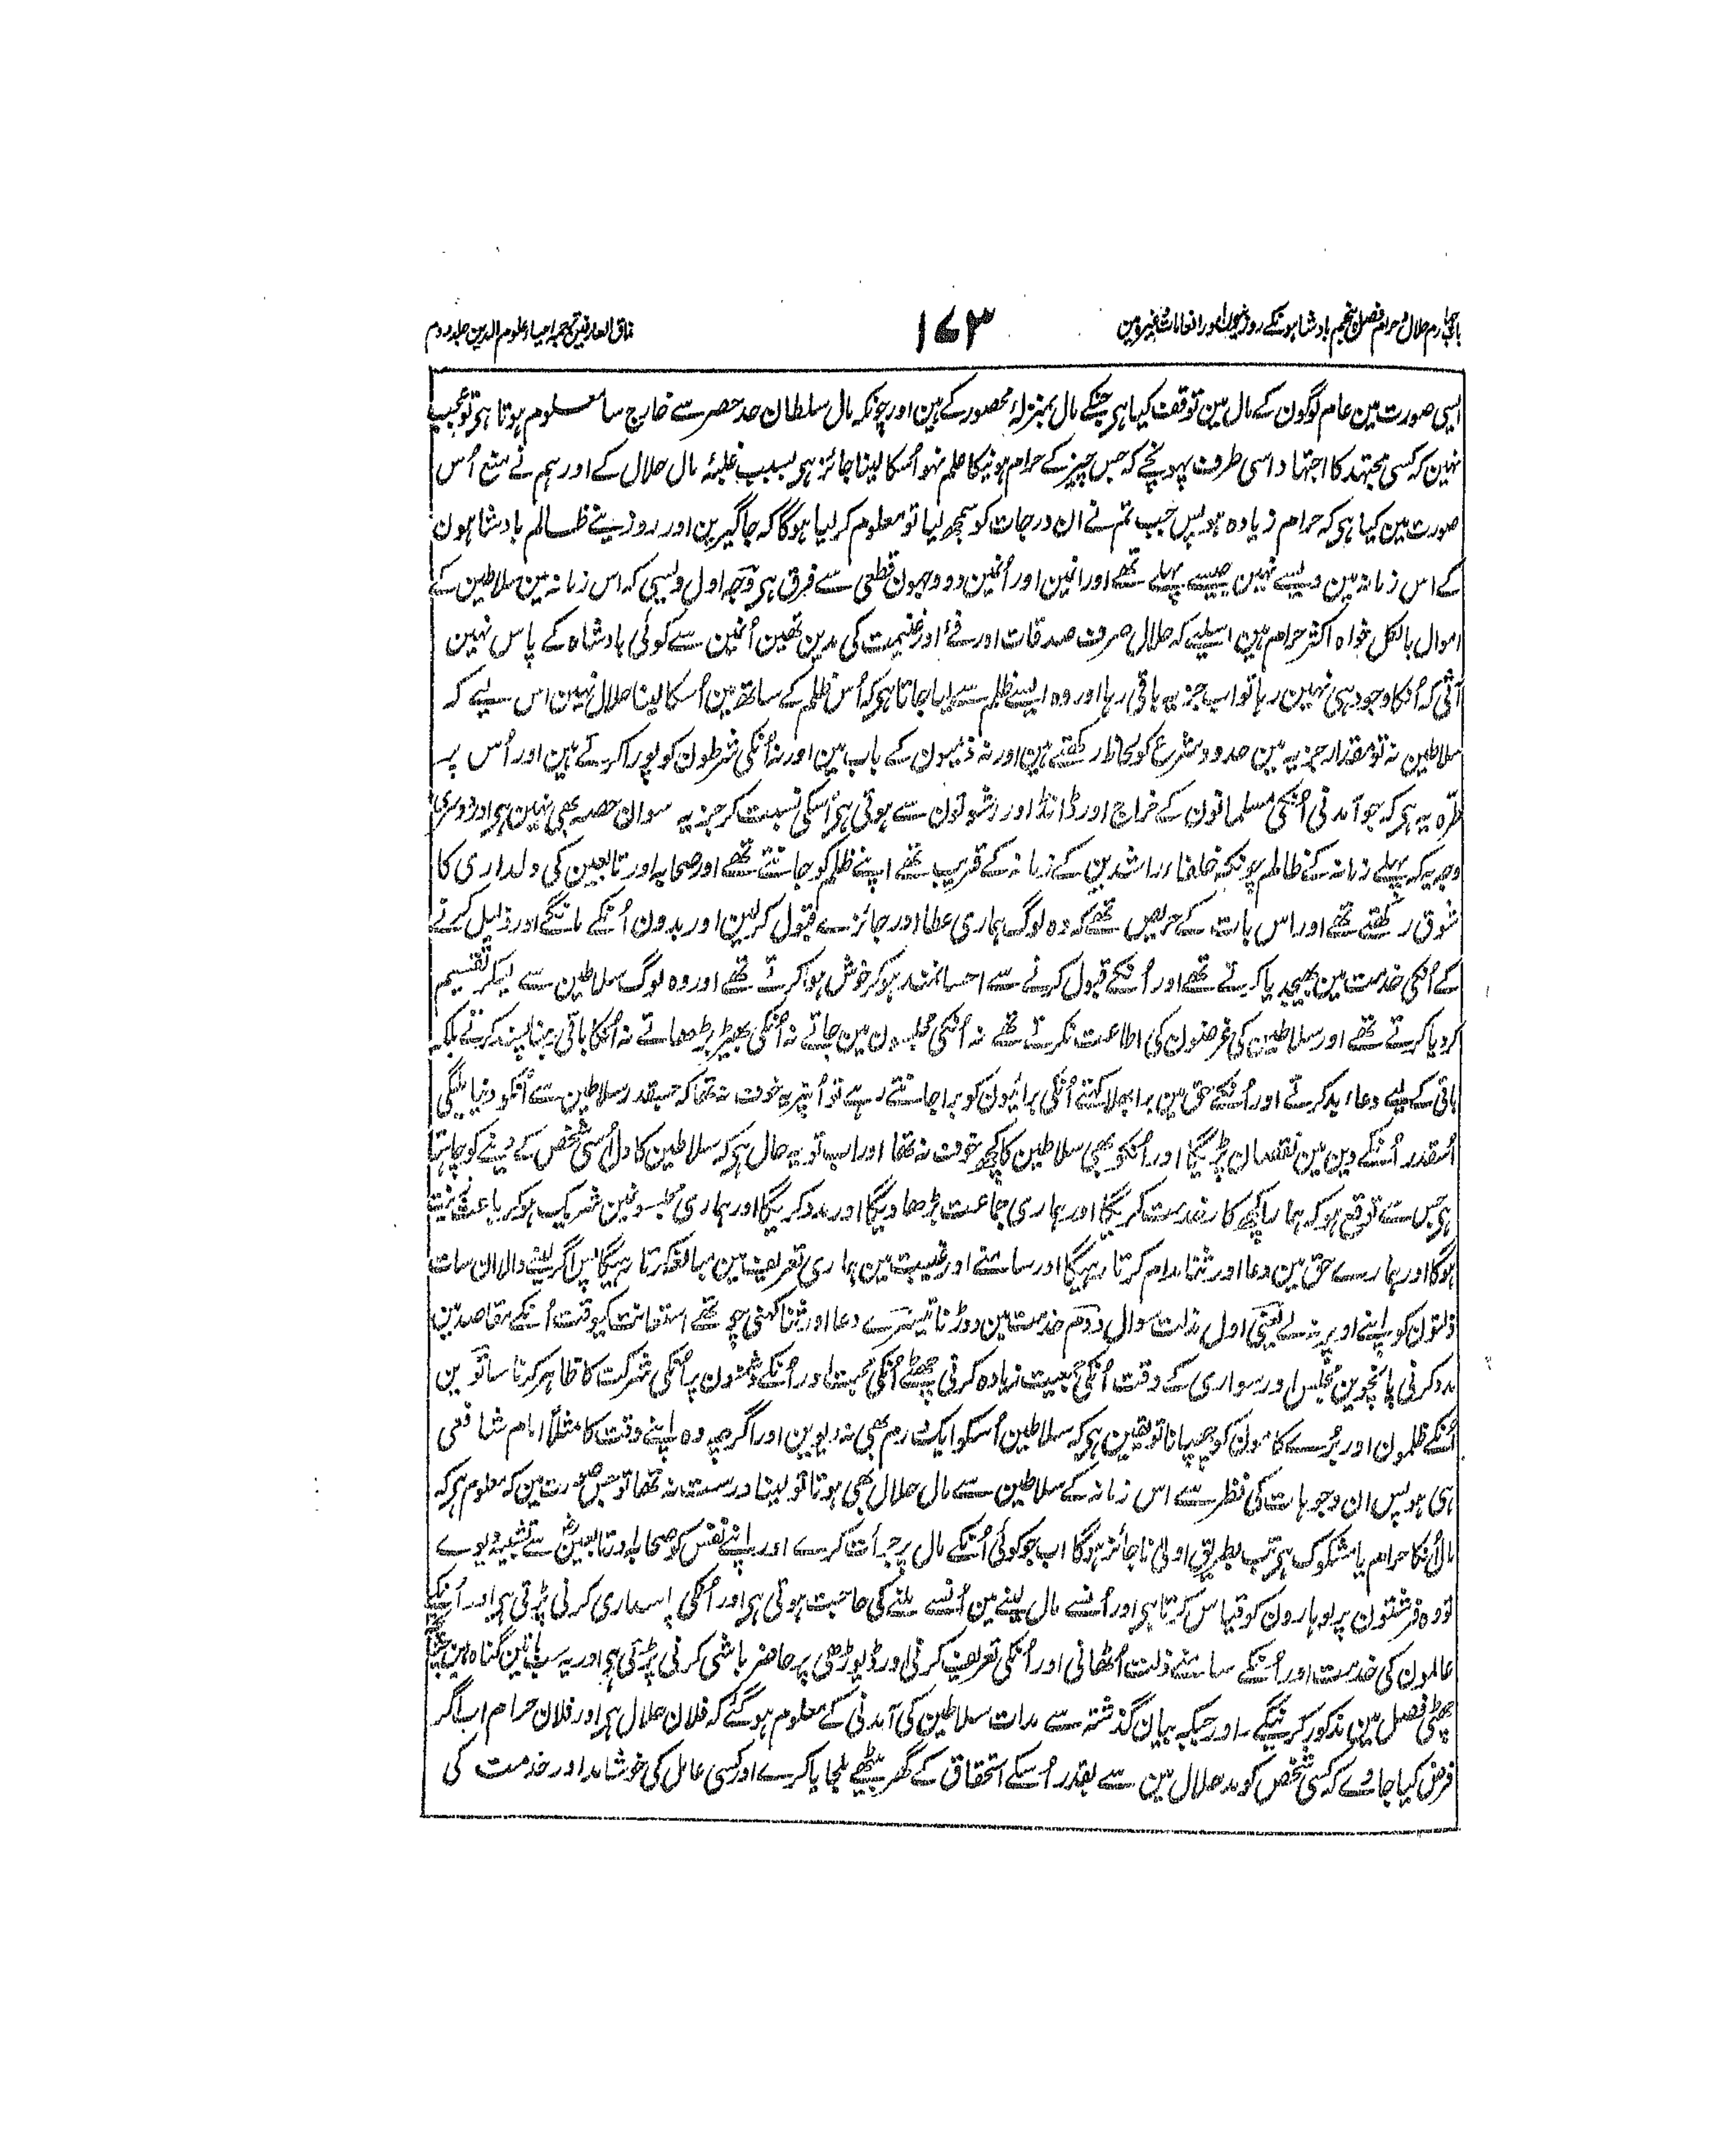 باب چہارم حلال و حرام فصل پنجم بادشاہونکے روزینون اور انعامات وغیرہ مین
۱۷۳
مذاق العارفین ترجمہ احیاء علوم الدین جلد دوم
ایسی صورت مین عام لوگون کے مال مین توقف کیا ہی جنکے مال بمنزلہ محصور کے ہین اور چونکہ مال سلطان حد حصر سے خارج سا معلوم ہوتا ہی تو عجب
نہین کہ کسی مجتہد کا اجتہاد اسی طرف پہونچے کہ جس چیز کے حرام ہونیکا علم نہو اُسکا لینا جائز ہی بسبب غلبۂ مال حلال کے اور ہم نے منع اُس
صورت مین کیا ہی کہ حرام زیادہ ہو پس جب تم نے ان درجات کو سمجھ لیا تو معلوم کر لیا ہوگا کہ جاگیرین اور روزینے ظالم بادشاہون
کے اس زمانہ مین ویسے نہین جیسے پہلے تھے اور انین اور اُنمین دو وجہون قطعی سے فرق ہی وجہ اول ویسی کہ اس زمانہ مین سلاطین کے
اموال بالکل خواہ اکثر حرام ہین اسلیے کہ حلال صرف صدقات اور فئ اور غنیمت کی مدین تھین اُنمین سے کوئی بادشاہ کے پاس نہین
آتی کہ اُنکا وجود ہی نہین رہا تو اب جزیہ باقی رہا اور وہ ایسے ظلم سے لیا جاتا ہی کہ اُس ظلم کے ساتھ مین اُسکا لینا حلال نہین اس لیے کہ
سلاطین نہ تو مقدار جزیہ مین حدود شرع کو لحاظ رکھتے ہین اور نہ ذمیون کے باب مین اور نہ اُنکی شرطون کو پورا کرتے ہین اور اُس پر
طرّہ یہ ہی کہ جو آمدنی اُنکی مسلمانون کے خراج اور ڈانڈ اور رشوتون سے ہوتی ہی اُسکی نسبت کر جزیہ سوان حصہ بھی نہین ہی اور دوسری
وجہ یہ کہ پہلے زمانہ کے ظالم چونکہ خلفاء راشدین کے زمانہ کے قریب تھے اپنے ظلم کو جانتے تھے اور صحابہ اور تابعین کی دلداری کا
شوق رکھتے تھے اور اس بات کے حریص تھے کہ وہ لوگ ہماری عطا اور جائزے قبول کرلین اور بدون اُنکے مانگے اور ذلیل کرنے
کے اُنکی خدمت مین بھیجدیا کرتے تھے اور اُنکے قبول کرنے سے احسانمند ہوکر خوش ہوا کرتے تھے اور وہ لوگ سلاطین سے لیکر تقسیم
کردیا کرتے تھے اور سلاطین کی غرضون کی اطاعت نکرتے تھے نہ اُنکی مجلسون مین جاتے نہ اُنکی بھیڑ بڑھاتے نہ اُنکا باقی رہنا پسند کرتے بلکہ
باقی کے لیے دعاء بد کرتے اور اُنکے حق مین برا بھلا کہتے اُنکی برائیون کو برا جانتے رہے تو اُنپر یہ خوف نہ تھا کہ جسقدر سلاطین سے اُنکو دنیا ملیگی
اُسقدر اُنکے دین مین نقصان پڑیگا اور اُنکو بھی سلاطین کا کچھ خوف نہ تھا اور اب تو یہ حال ہی کہ سلاطین کا دل اُسی شخص کے دینے کو چاہتا
ہی جس سے توقع ہو کہ ہمارا کچھ کار خدمت کریگا اور ہماری جماعت بڑھا ویگا اور مدد کریگا اور ہماری مجلسونمین شریک ہوکر باعث زینت
ہوگا اور ہمارے حق مین دعا اور ثنا مدام کرتا رہیگا اور سامنے اور غیبت مین ہماری تعریف مین مبالغہ کرتا رہیگا پس اگر لینے والا ان سات
ذلتون کو اپنے اوپر نہ لے یعنی اول ذلت سوال دوم خدمت مین دوڑنا تیسرے دعا اور ثنا کہنی چوتھے استعانت کیوقت اُنکے مقاصد مین
مدد کرنی پانچوین مجلس اور سواری کے وقت اُنکی جمعیت زیادہ کرنی چھٹے اُنکی محبت اور اُنکے دشمنون پر اُنکی شرکت کا ظاہر کرنا ساتوین
اُنکے ظلمون اور بُرے کامون کو چھپانا تو یقین ہی کہ سلاطین اُسکو ایک درم بھی نہ دیوین اور اگرچہ وہ اپنے وقت کا مثلاً امام شافعی
ہی ہو پس ان وجوہات کی نظر سے اس زمانہ کے سلاطین سے مال حلال بھی ہوتا تو لینا درست نہ تھا تو جس صورت مین کہ معلوم ہی کہ
مال اُنکا حرام یا مشکوک ہی تب بطریق اولیٰ ناجائز ہوگا اب جو کوئی اُنکے مال پر جرأت کرے اور اپنے نفس کو صحابہ اور تابعین سے تشبیہ دیوے
تو وہ فرشتون پر لوہارون کو قیاس کرتا ہی اور اُنسے مال لینے مین اُنسے ملنے کی حاجت ہوتی ہی اور اُنکی پاسداری کرنی پڑتی ہی اور اُنکے
عاملون کی خدمت اور اُنکے سامنے ذلت اُٹھانی اور اُنکی تعریف کرنی اور ڈیوڑھی پر حاضر باشی کرنی پڑتی ہی اور یہ سب باتین گناہ ہین چنانچہ
چھٹی فصل مین مذکور کرینگے اور جبکہ بیان گذشتہ سے مدات سلاطین کی آمدنی کے معلوم ہوگئے کہ فلان حلال ہی اور فلان حرام اب اگر
فرض کیا جاوے کہ کسی شخص کو مد حلال مین سے بقدر اُسکے استحقاق کے گھر بیٹھے ملجایا کرے اور کسی عامل کی خوشامد اور خدمت کی